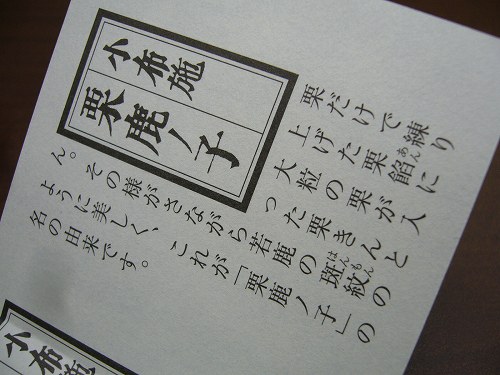 小布施
栗鹿ノ子
栗だけで練り
上げた栗餡に
あん
大粒の栗が入
った栗きんと
ん。その様がさながら若鹿の斑紋の
はんもん
ように美しく、これが「栗鹿ノ子」の
名の由来です。
小布施